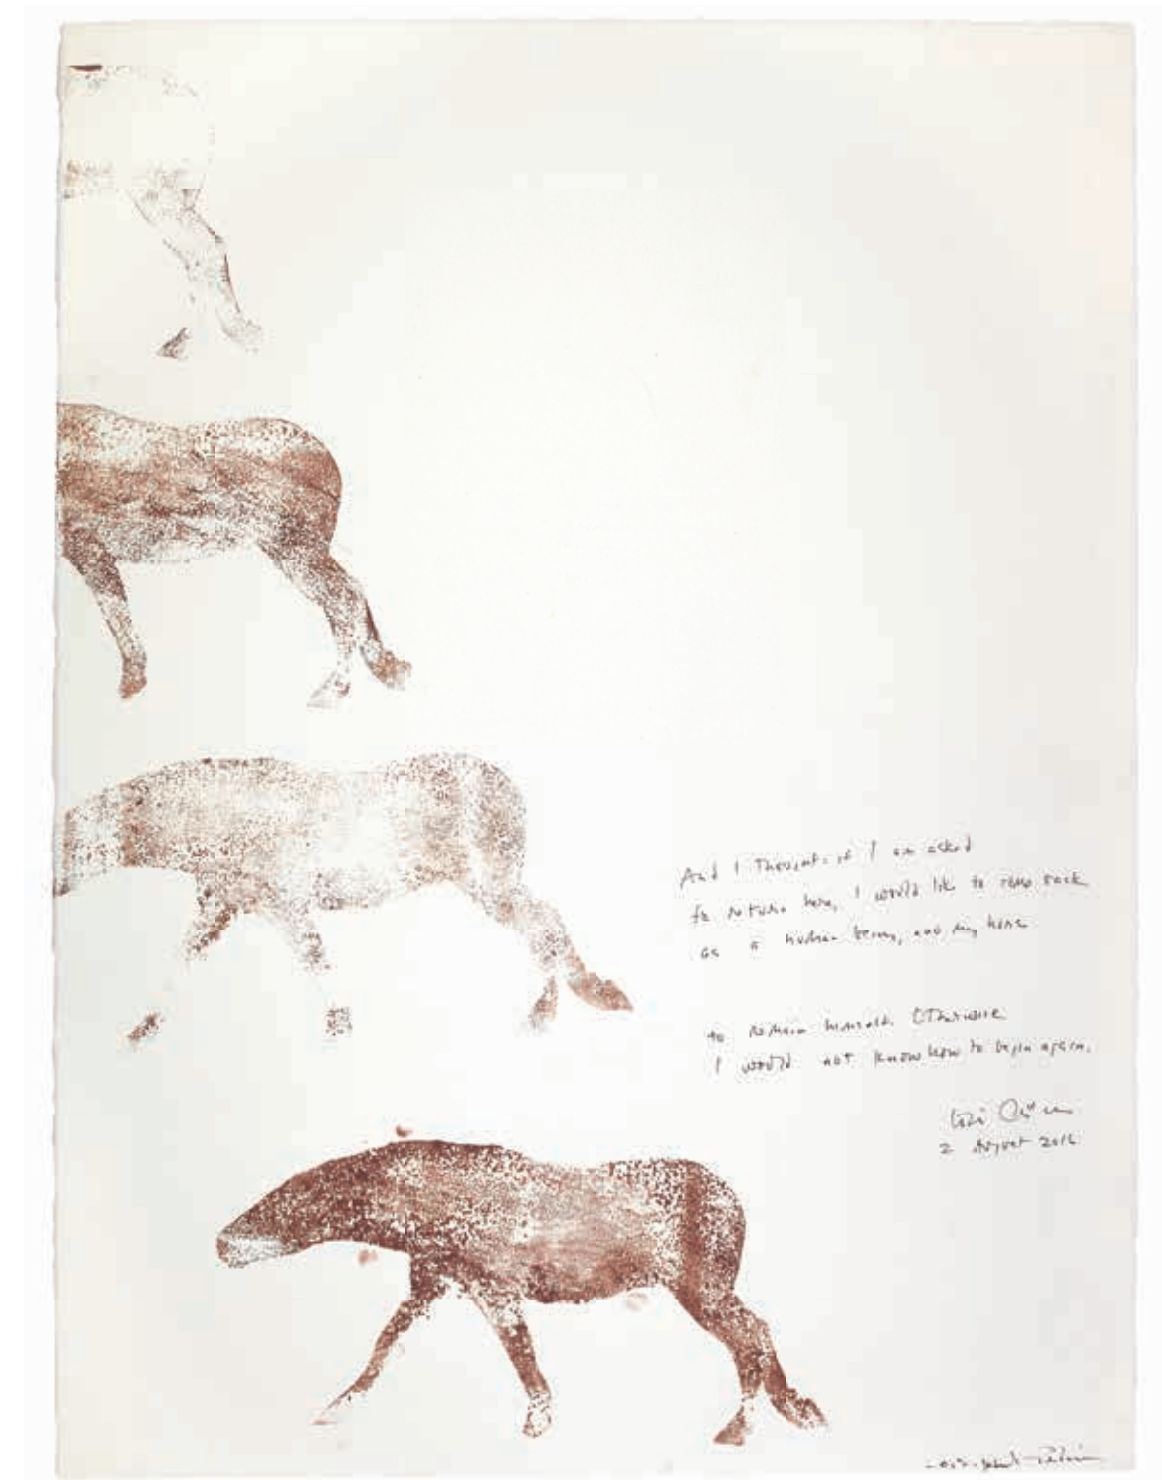 And I thought: if I am asked
to return here, I would like to come back
as a human being, and my horse
to remain himself. Otherwise
I would not know how to begin again.
2 August 2016